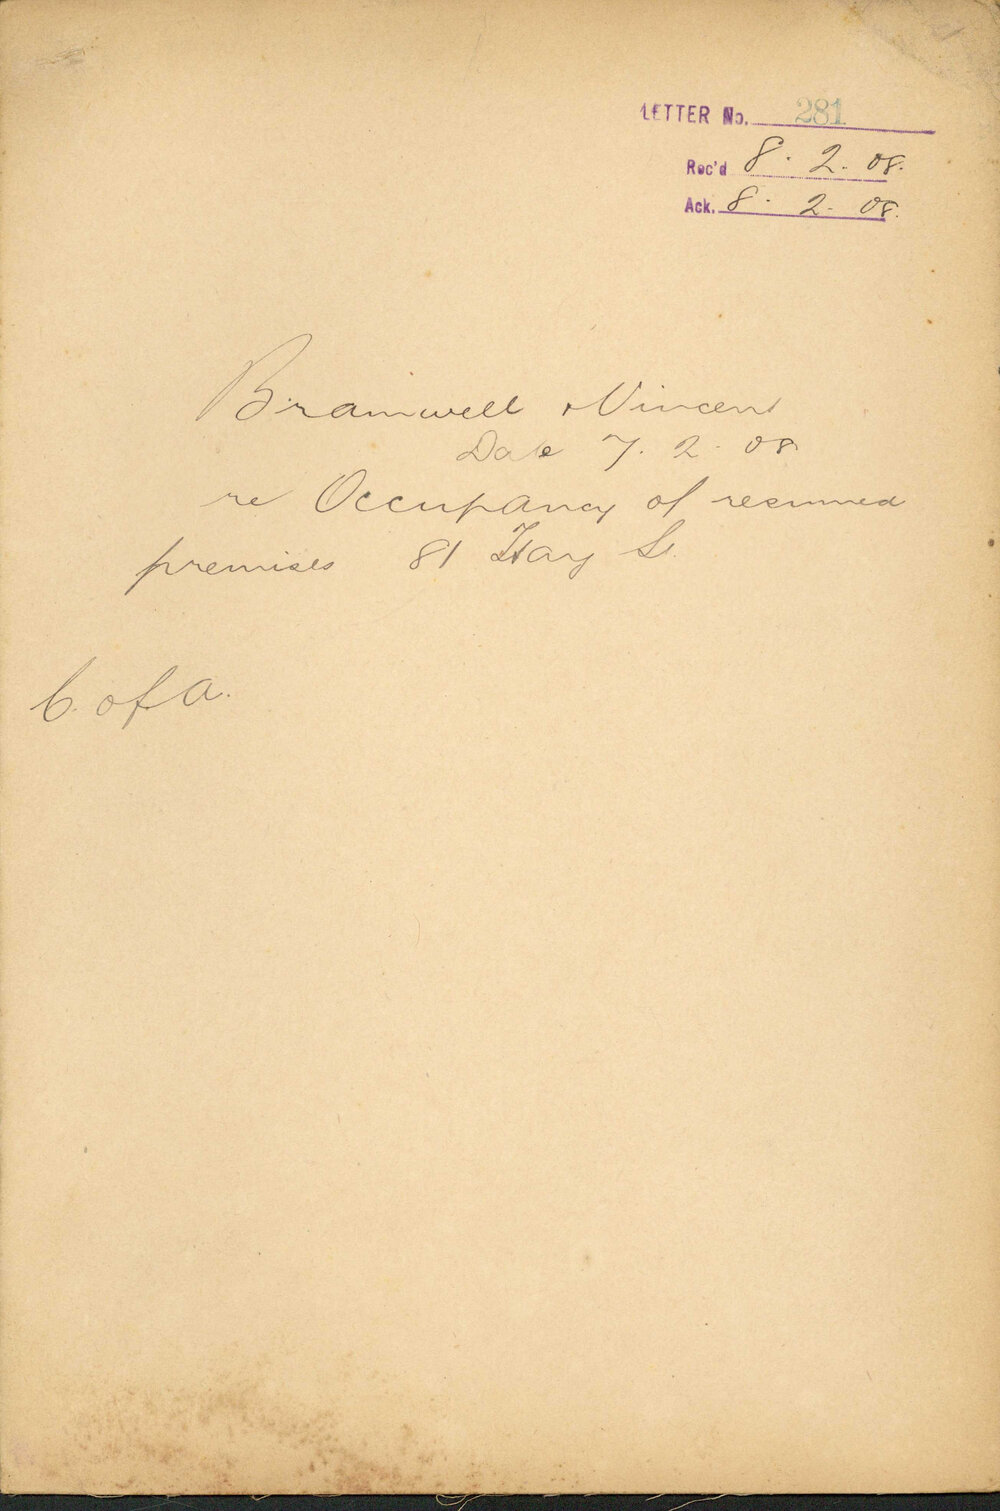 LETTER No. 281
Rec'd 8. 2. 08.
Ack. 8. 2. 08.
Bramwell Vincent
Date 7. 2. 08
re Occupancy of resumed
premises 81 Hay St.
C. of A.